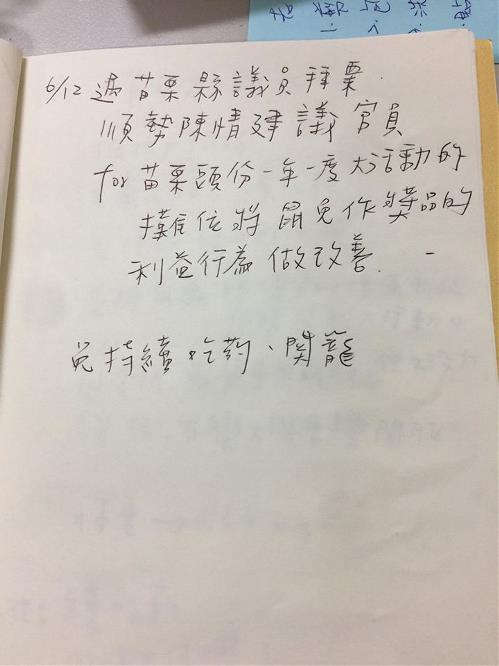 6/12 遇苗栗縣議員拜票.
順勢陳情建議官員
for 苗栗頭份一年一度大活動的
攤位將鼠兔作獎品的
利益行為做改善.
兔持續吃藥、關籠